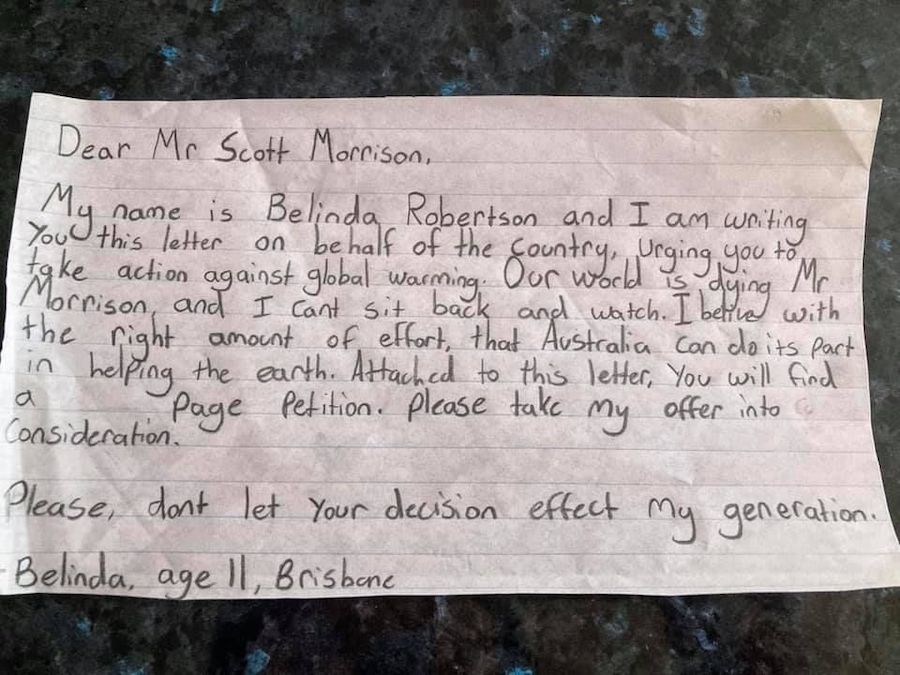 Dear Mr Scott Morrison,
My name is Belinda Robertson and I am writing
You this letter on behalf of the country, urging you to
take action against global warming. Our world is dying Mr
Morrison, and I cant sit back and watch. I belive with
the right amount of effort, that Australia can do its part
in helping the earth. Attached to this letter, You will find
a page petition. Please take my offer into
consideration.
Please, dont let your decision effect my generation.
Belinda, age 11, Brisbane